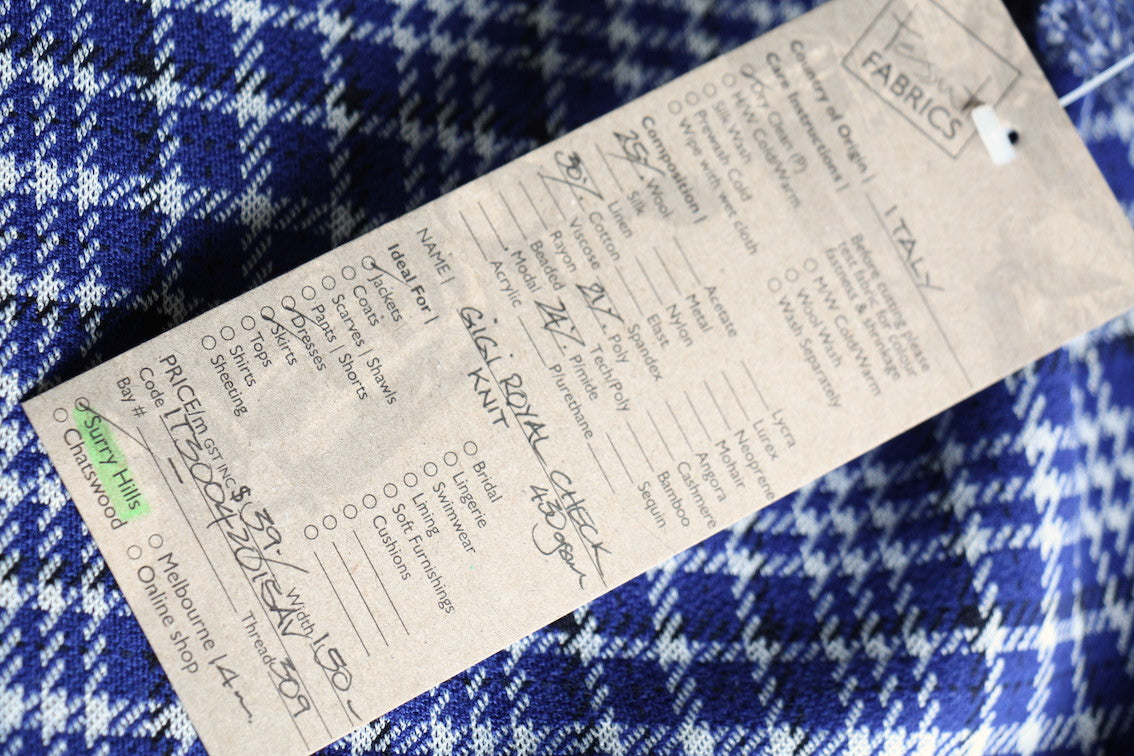 Tessuti
FABRICS
Country of Origin | ITALY
Care Instructions |
Dry Clean (P)
H/W Cold/Warm
Silk Wash
Prewash Cold
Wipe with wet cloth
Before cutting please
test fabric for colour
fastness & shrinkage
M/W Cold/Warm
Wool Wash
Wash Separately
Composition |
25% Wool
Silk
Linen
30% Cotton
Viscose
Rayon
Beaded
Modal
Acrylic
Acetate
Metal
Nylon
Elast
Spandex
21% Poly
Tech/Poly
24% P/mide
P/urethane
Lycra
Lurex
Neoprene
Mohair
Angora
Cashmere
Bamboo
Sequin
NAME | GIGI ROYAL CHECK
KNIT 430gsm
Ideal For |
Jackets
Coats
Scarves | Shawls
Pants | Shorts
Dresses
Skirts
Tops
Shirts
Sheeting
Bridal
Lingerie
Swimwear
Lining
Soft Furnishings
Cushions
PRICE/m GST INC $39./ Width 150
Code Thread 309
Bay #
Surry Hills
Chatswood
Melbourne 14m.
Online shop